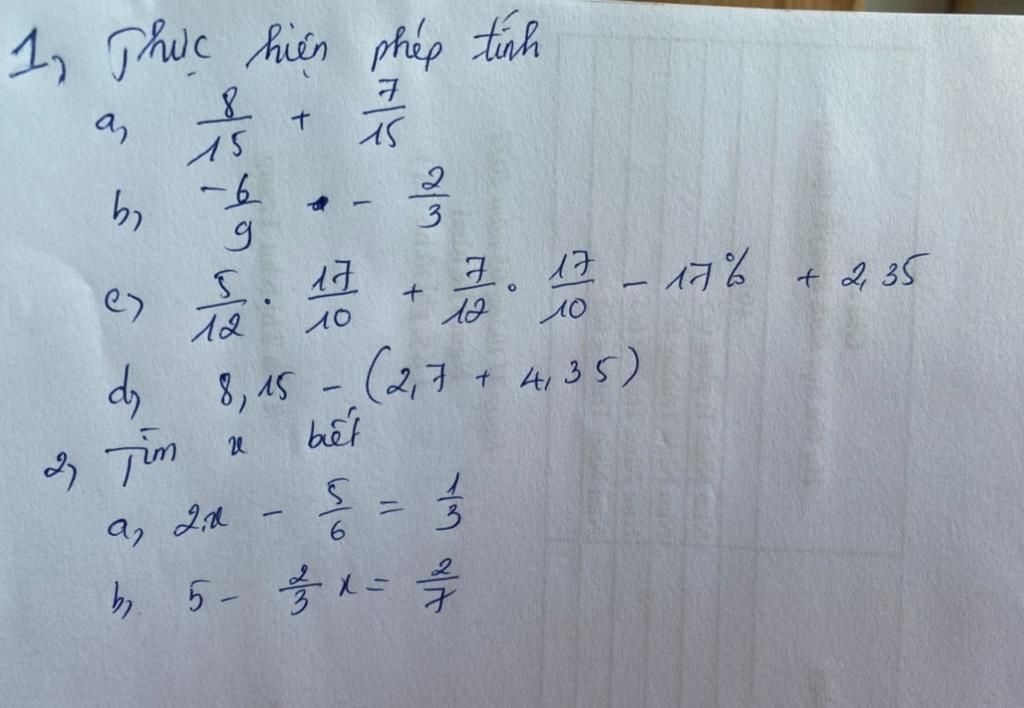 1, Thực hiện phép tính
a, 8/15 + 7/15
b, -6/9 - 2/3
c, 5/12 . 17/10 + 7/12 . 17/10 - 17% + 2,35
d, 8,15 - (2,7 + 4,35)
2, Tìm x biết
a, 2.x - 5/6 = 1/3
b, 5 - 2/3 x = 2/7